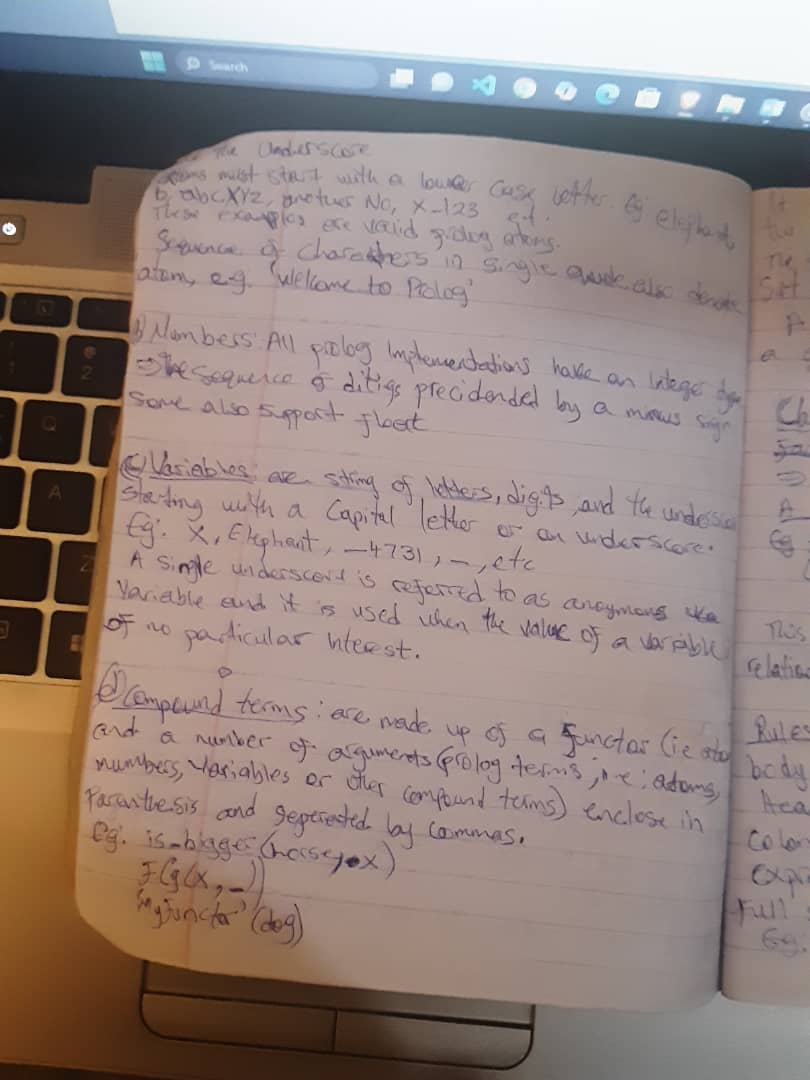 Search
the Underscore
atoms must start with a lower case letter. Eg elephant,
b, abcXYZ, another No, x_123 et.
These examples are valid prolog atoms.
Sequence of Characthers in single quote also denote
atom, e.g. 'Welcome to Prolog'
b) Numbers: All prolog Implementations have an Integer type
⇒ The sequence of ditigs precidended by a minus sign
Some also support float
(c) Variables: are string of letters, digits, and the undersco
starting with a Capital letter or an underscore.
Eg: X, Elephant, _4731, _, etc
A single underscore is referred to as anoymous
Variable and it is used when the value of a variable
of no particular Interest.
d) Compound terms: are made up of a functor (ie ato
and a number of arguments (prolog terms, i.e: atoms,
numbers, Variables or other compound terms) enclose in
Paranthesis and seperated by commas.
Eg: is_bigger(horse, x)
F(g(x, _))
'Myfunctor' (dog)
It
The
Set
A
a
⇒
A
Eg
This
relation
Rules
body
Hea
Colon
expr
Full
Eg:
2
Q
A
Z